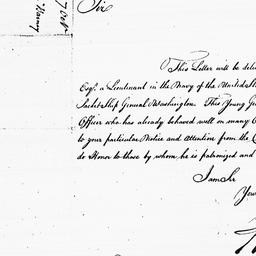 Sir
This Letter will be deli
Esqr. a Lieutenant in the Navy of the United St
Packet Ship General Washington. This Young Ge
Officer who has already behaved well on many O
to your particular Notice and Attention from the C
do Honor to those by whom he is patronized and
I am Sir
Your